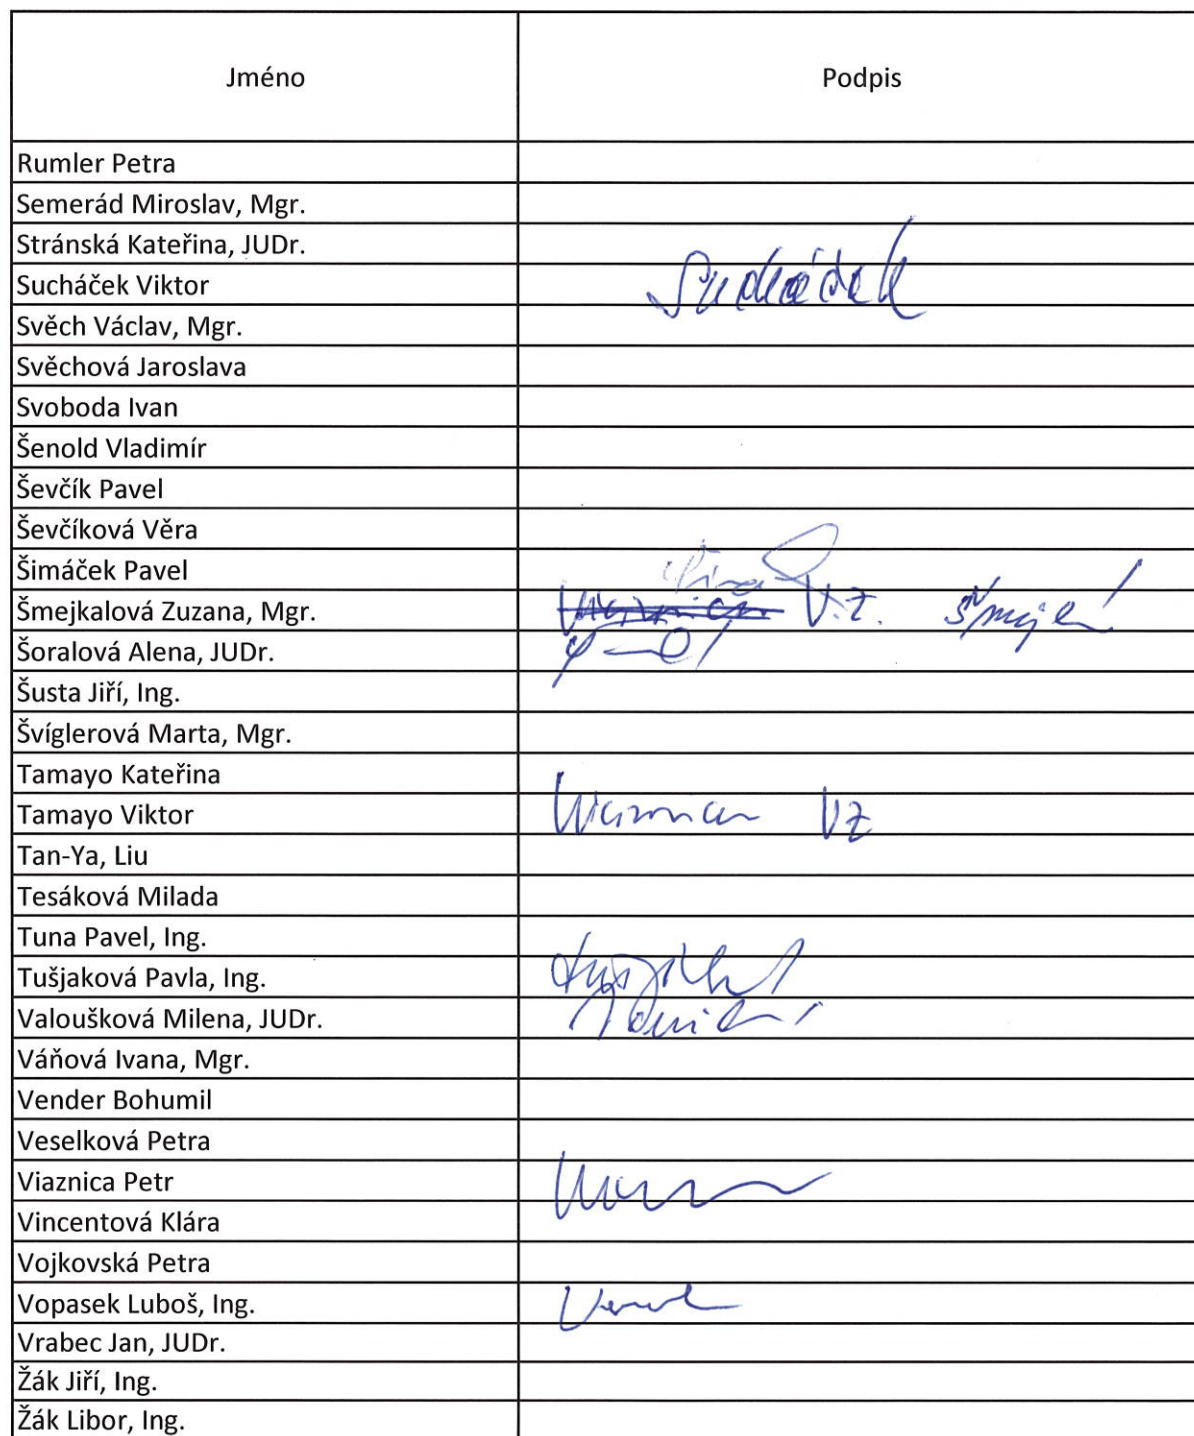 Jméno Podpis
Rumler Petra
Semerád Miroslav, Mgr.
Stránská Kateřina, JUDr.
Sucháček Viktor Sucháček
Svěch Václav, Mgr.
Svěchová Jaroslava
Svoboda Ivan
Šenold Vladimír
Ševčík Pavel
Ševčíková Věra
Šimáček Pavel
Šmejkalová Zuzana, Mgr. V.Z.
Šoralová Alena, JUDr.
Šusta Jiří, Ing.
Švíglerová Marta, Mgr.
Tamayo Kateřina
Tamayo Viktor VZ
Tan-Ya, Liu
Tesáková Milada
Tuna Pavel, Ing.
Tušjaková Pavla, Ing.
Valoušková Milena, JUDr.
Váňová Ivana, Mgr.
Vender Bohumil
Veselková Petra
Viaznica Petr
Vincentová Klára
Vojkovská Petra
Vopasek Luboš, Ing.
Vrabec Jan, JUDr.
Žák Jiří, Ing.
Žák Libor, Ing.